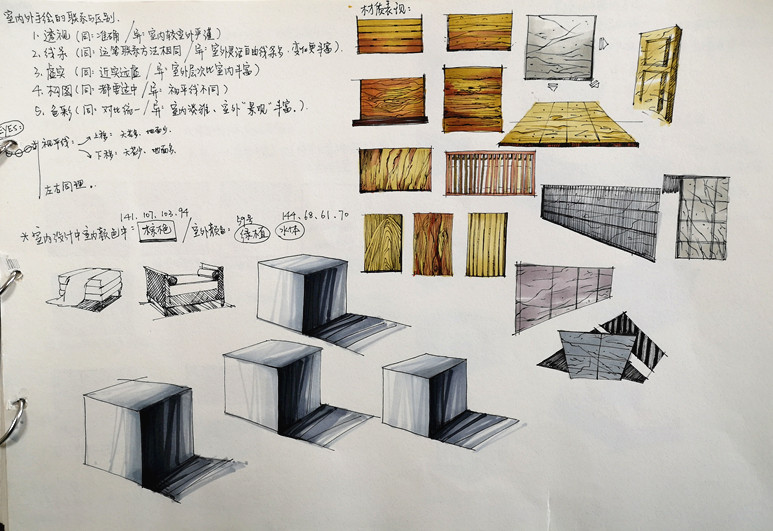 室内外手绘的联系与区别.
1. 透视 (同: 准确 / 异: 室内较室外严谨)
2. 线条 (同: 运笔联系方法相同 / 异: 室外灵活自由线条多, 变化更丰富).
3. 虚实 (同: 近实远虚 / 异: 室外层次比室内丰富)
4. 构图 (同: 都需适中 / 异: 视平线不同)
5. 色彩 (同: 对比统一 / 异: 室内淡雅、室外"景观"丰富.)
EYES:
视平线: 上移: 天 地面
下移: 天 地面多.
左右同理.
141. 107. 103. 94
59号
144. 68. 61. 70
* 室内设计中室内颜色中: 木棕色 / 室外颜色: 绿植 水体
材质表现: